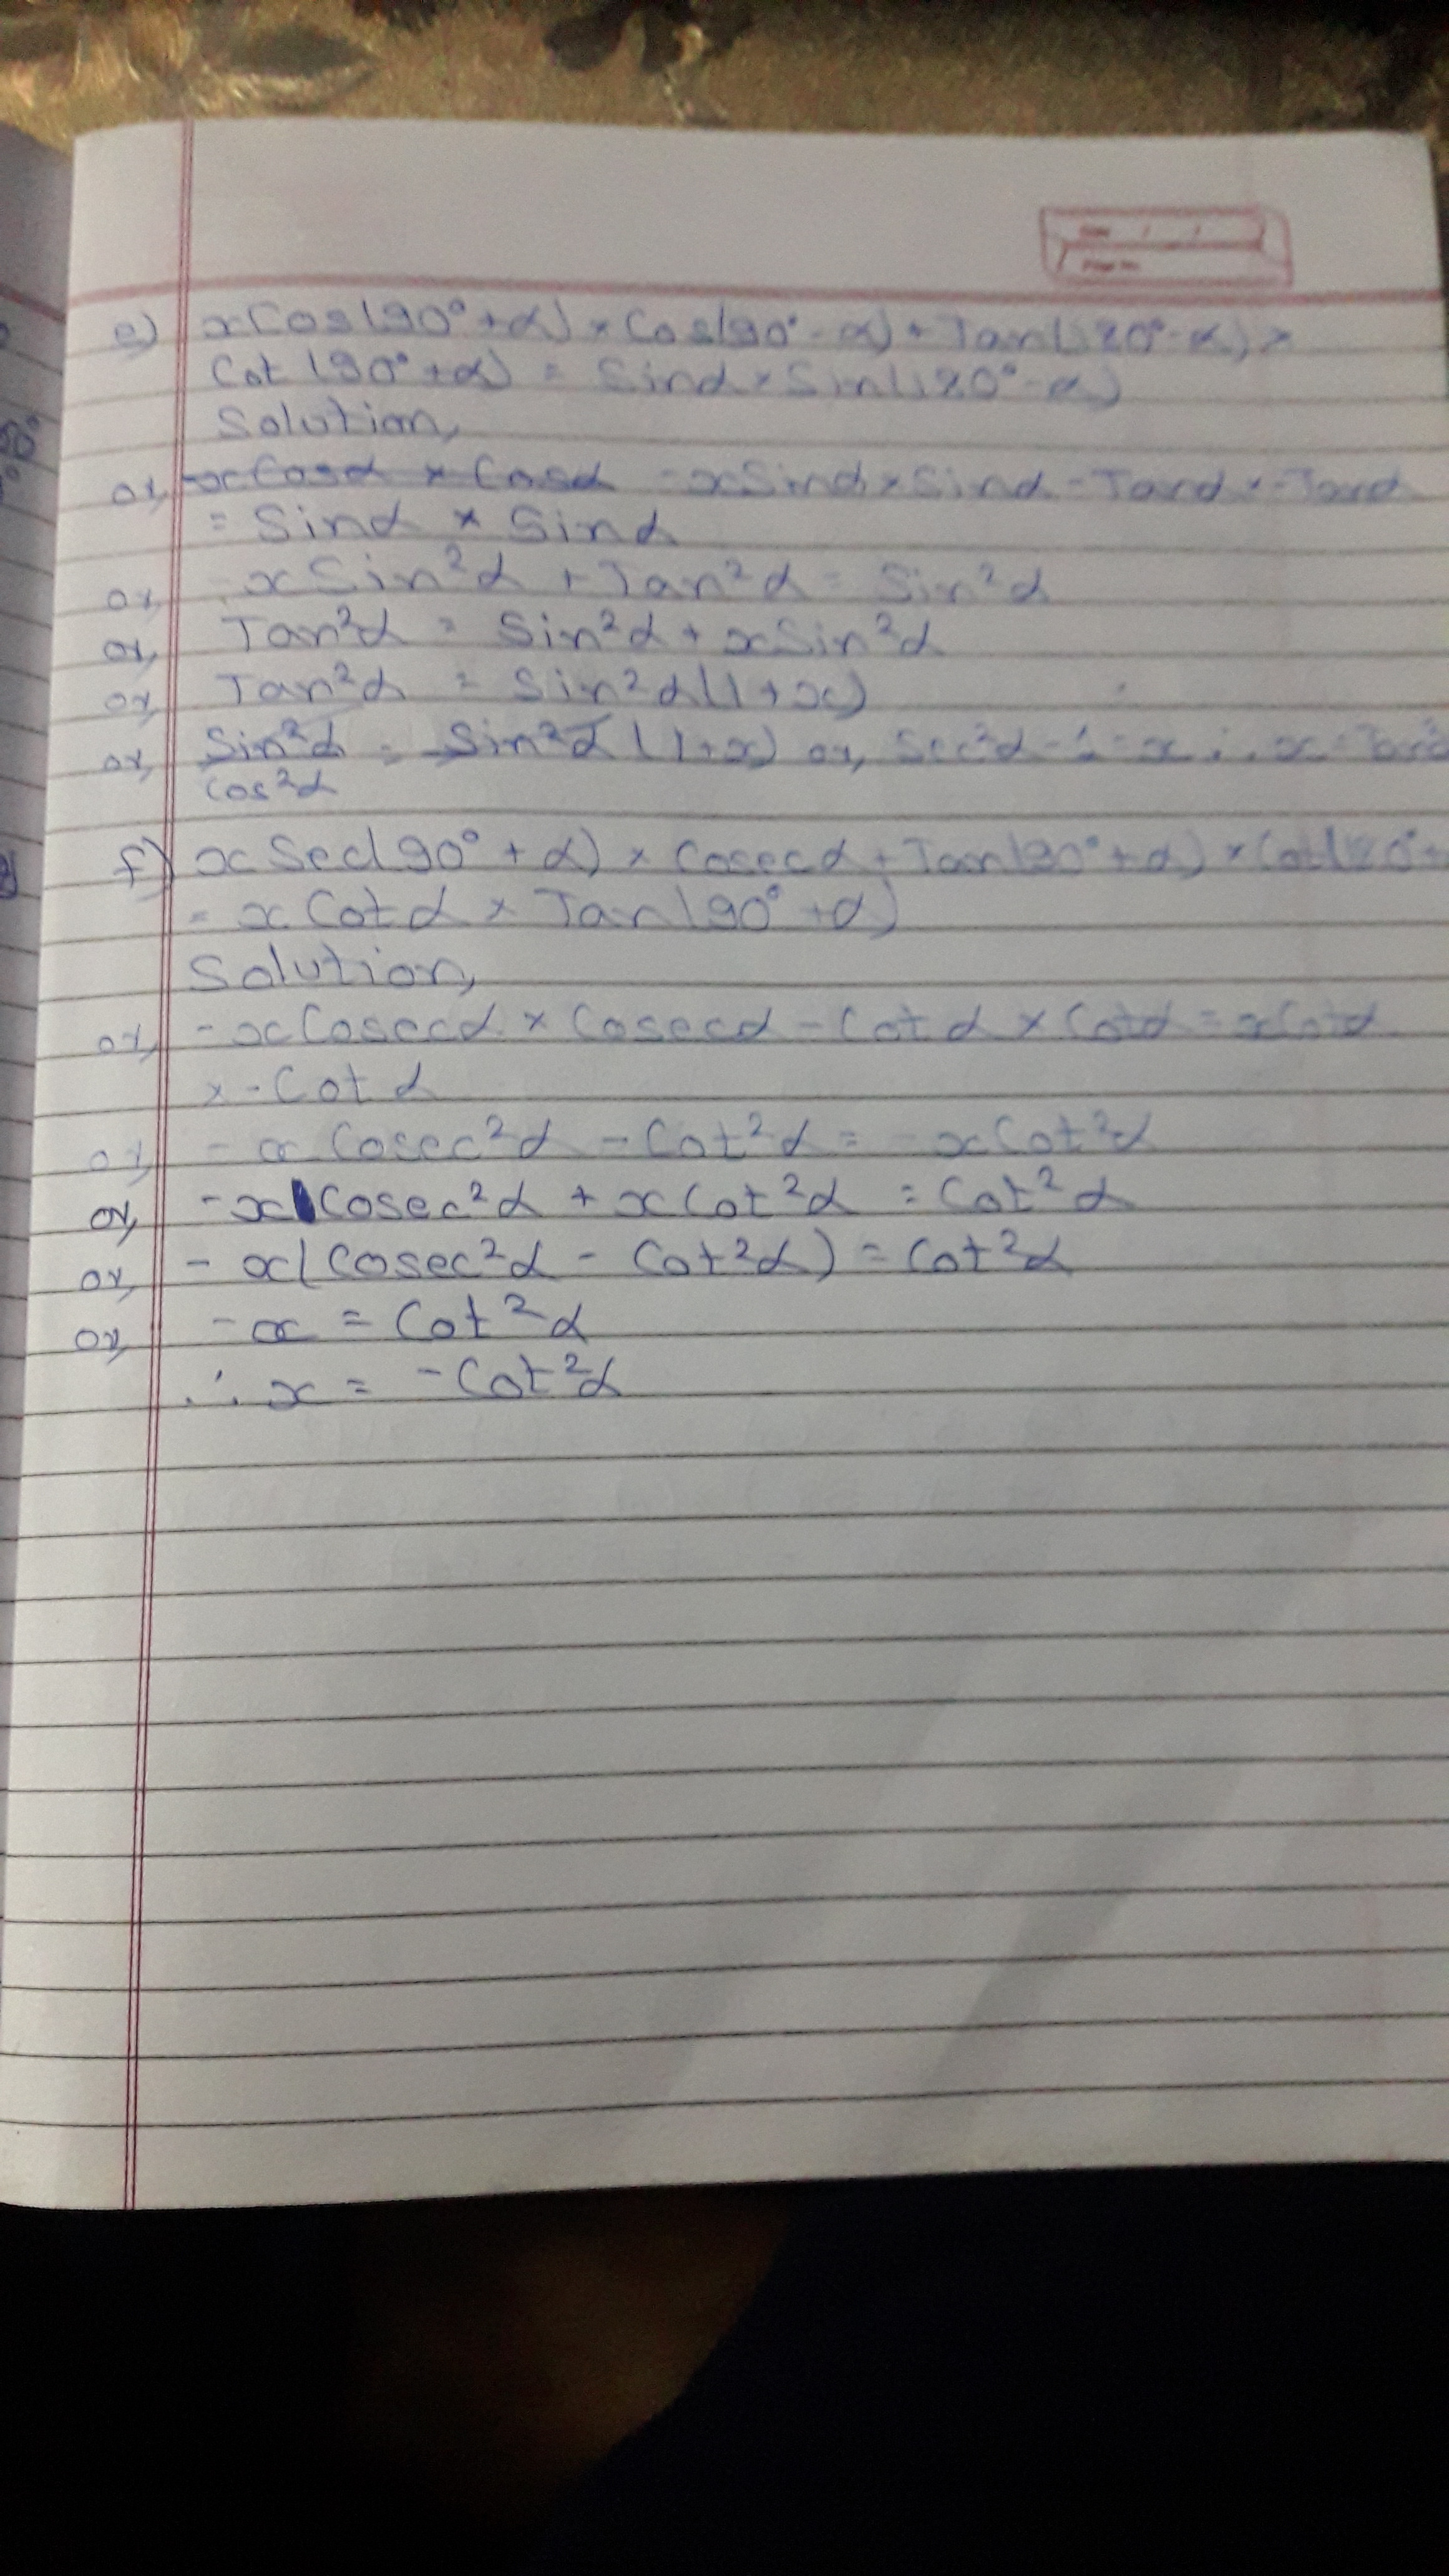 Page No.
e) xCos(90°+α) × Cos(90°-α) + Tan(180°-α) ×
Cot (90°+α) = Sinα × Sin(180°-α)
Solution,
or, xCosα × Cosα -xSinα × Sinα - Tanα × -Tanα
= Sinα × Sinα
or, -xSin²α + Tan²α = Sin²α
or, Tan²α = Sin²α + xSin²α
or, Tan²α = Sin²α(1+x)
or, Sin²α/Cos²α = Sin²α (1+x) or, Sec²α - 1 = x ∴ x = Tan²α
f) xSec(90°+α) × Cosecα + Tan(90°+α) × Cot(180°+
= xCotα × Tan(90°+α)
Solution,
or, -xCosecα × Cosecα - Cotα × Cotα = xCotα
× -Cotα
or, -xCosec²α - Cot²α = -xCot²α
or, -xCosec²α + xCot²α = Cot²α
or, -x(Cosec²α - Cot²α) = Cot²α
or, -x = Cot²α
∴ x = -Cot²α